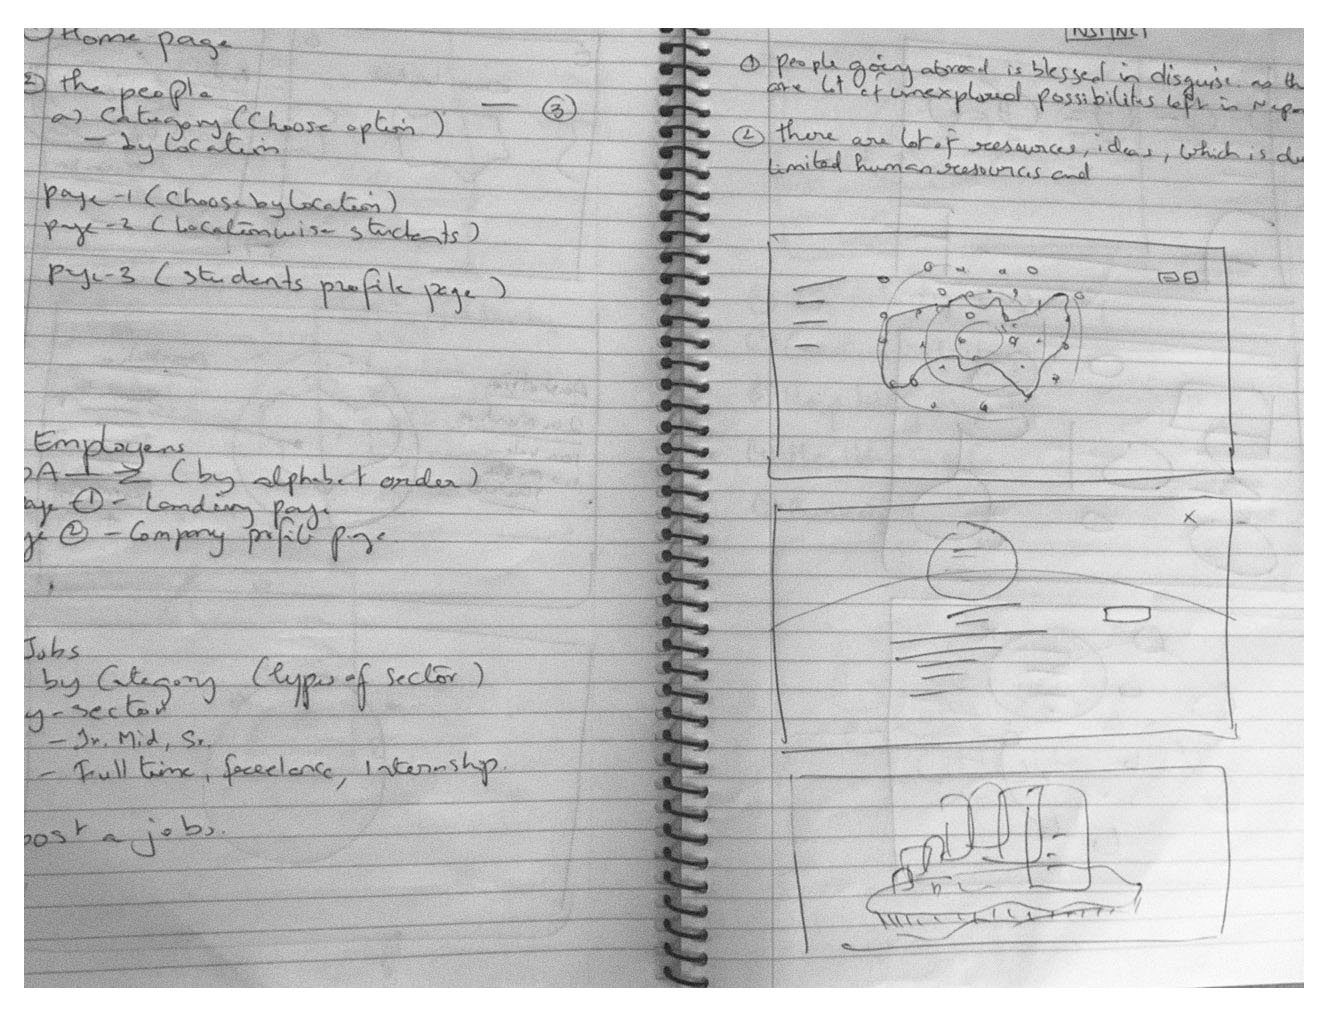 ① Home page
② the people
a) Category (Choose option) — ③
– by location
page-1 (choose by location)
page-2 (Locationwise students)
page-3 (students profile page)
Employers
A - Z (by alphabet order)
① - Landing page
② - Company profile page.
Jobs
by Category (types of sector)
y-sector
– Jr. Mid, Sr.
– Full time, freelance, internship.
post a jobs.
INSTINCT
① people going abroad is blessed in disguise as th
are lot of unexplored possibilities left in
② there are lot of resources, ideas, which is du
limited human resources and
X